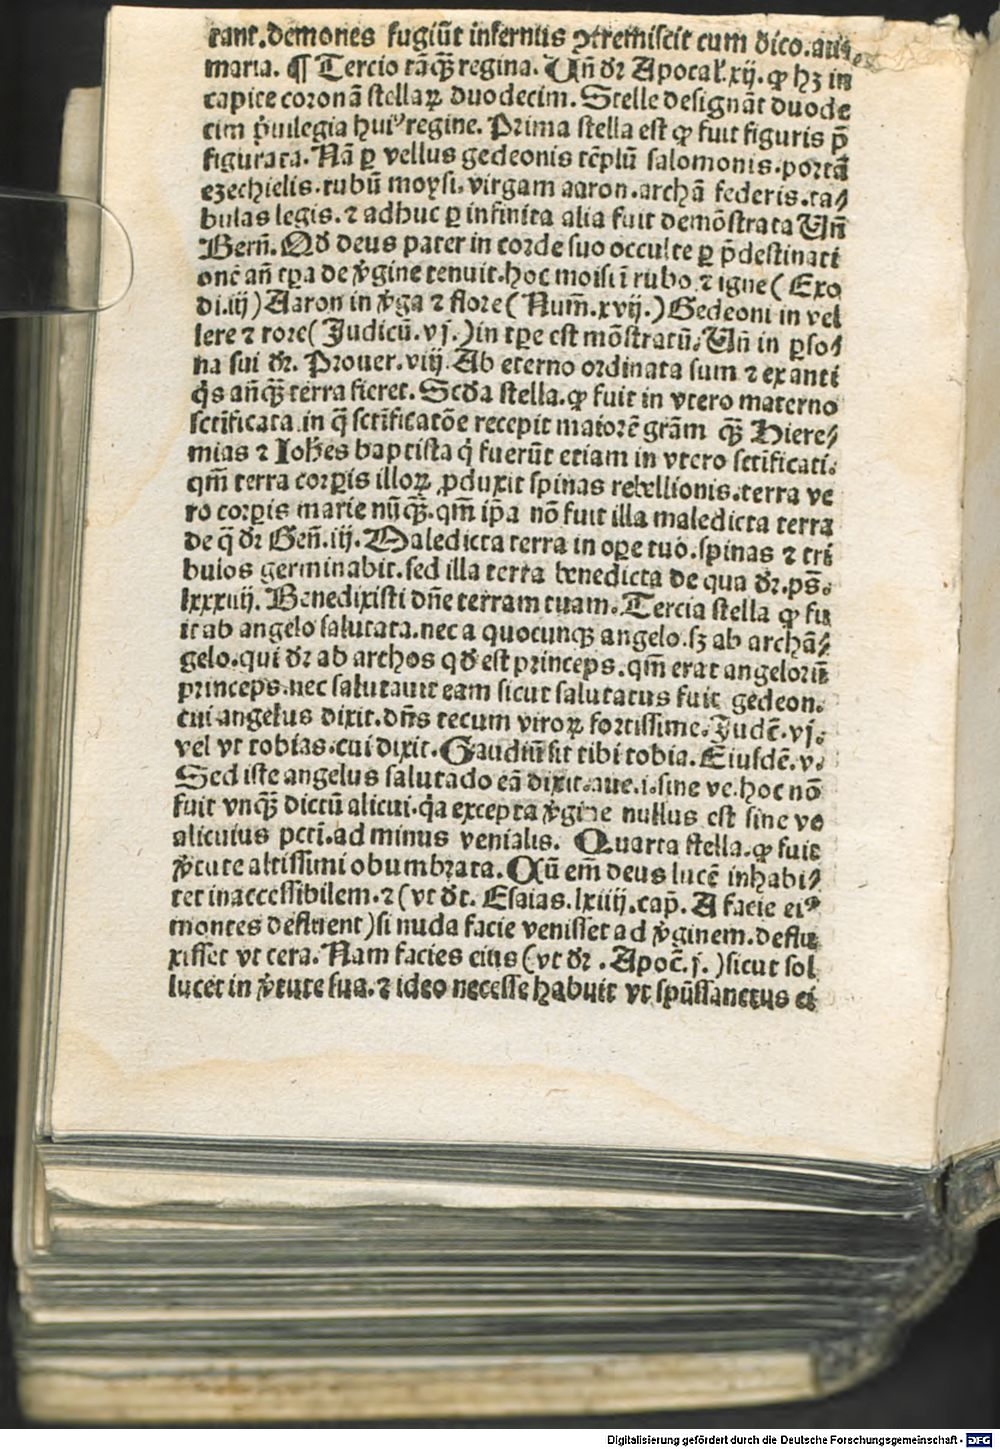 tant. demones fugiūt infernus ↄtremiscit cum dico. aue
maria. ¶ Tercio tāqꝫ regina. Vñ dr̄ Apocal̓. xij. ꝙ hꝫ in
capite coronā stellaꝝ duodecim. Stelle designāt duode
cim p̓uilegia huiꝰ regine. Prima stella est ꝙ fuit figuris p̄
figurata. Nā ꝑ vellus gedeonis tēplū salomonis. portā
ezechielis. rubū moysi. virgam aaron. archā federis. ta⸗
bulas legis. ⁊ adhuc ꝑ infinita alia fuit demōstrata Vñ
Bern̄. Qd̓ deus pater in corde suo occulte ꝑ p̄destinati
onē an̄ tp̄a de v̓gine tenuit. hoc moisi ī rubo ⁊ igne (Exo
di. iij) Aaron in v̓ga ⁊ flore (Num̄. xvij.) Gedeoni in vel
lere ⁊ rore (Judicū. vj.) in tꝑe est mōstratū. Vñ in ꝑso⸗
na sui dr̄. Prouer. viij. Ab eterno ordinata sum ⁊ ex anti
q̓s an̄qꝫ terra fieret. Scd̓a stella. ꝙ fuit in vtero materno
sctīficata. in q̄ sctīficatōe recepit maiorē grām qꝫ Hiere⸗
mias ⁊ Ioh̓es baptista q̓ fuerūt etiam in vtero sctīficati.
qm̄ terra corꝑis illoꝝ ꝓduxit spinas rebellionis. terra ve
ro corꝑis marie nūqꝫ. qm̄ ip̄a nō fuit illa maledicta terra
de q̄ dr̄ Gen̄. iij. Maledicta terra in oꝑe tuo. spinas ⁊ tri
bulos germinabit. sed illa terra benedicta de qua dr̄. ps̄.
lxxxiiij. Benedixisti dn̄e terram tuam. Tercia stella ꝙ fu
it ab angelo salutata. nec a quocunqꝫ angelo. sꝫ ab archā⸗
gelo. qui dr̄ ab archos qd̓ est princeps. qm̄ erat angelorū
princeps. nec salutauit eam sicut salutatus fuit gedeon.
cui angelus dixit. dn̄s tecum viroꝝ fortissime. Judē. vj.
vel vt tobias. cui dixit. Gaudiū sit tibi tobia. Eiusdē. v.
Sed iste angelus salutādo eā dixit. aue. i. sine ve. hoc nō
fuit vnqꝫ dictū alicui. q̓a excepta v̓gine nullus est sine ve
alicuius pcc̄i. ad minus venialis. Quarta stella. ꝙ fuit
v̓tute altissimi obumbrata. Cū em̄ deus lucē inhabi⸗
tet inaccessibilem. ⁊ (vt dr̄. Esaias. lxiiij. cap̄. A facie eiꝰ
montes defluent) si nuda facie venisset ad v̓ginem. deflu
xisset vt cera. Nam facies eius (vt dr̄. Apoc̄. j.) sicut sol
lucet in v̓tute sua. ⁊ ideo necesse habuit vt spūssanctus ei
Digitalisierung gefördert durch die Deutsche Forschungsgemeinschaft - DFG